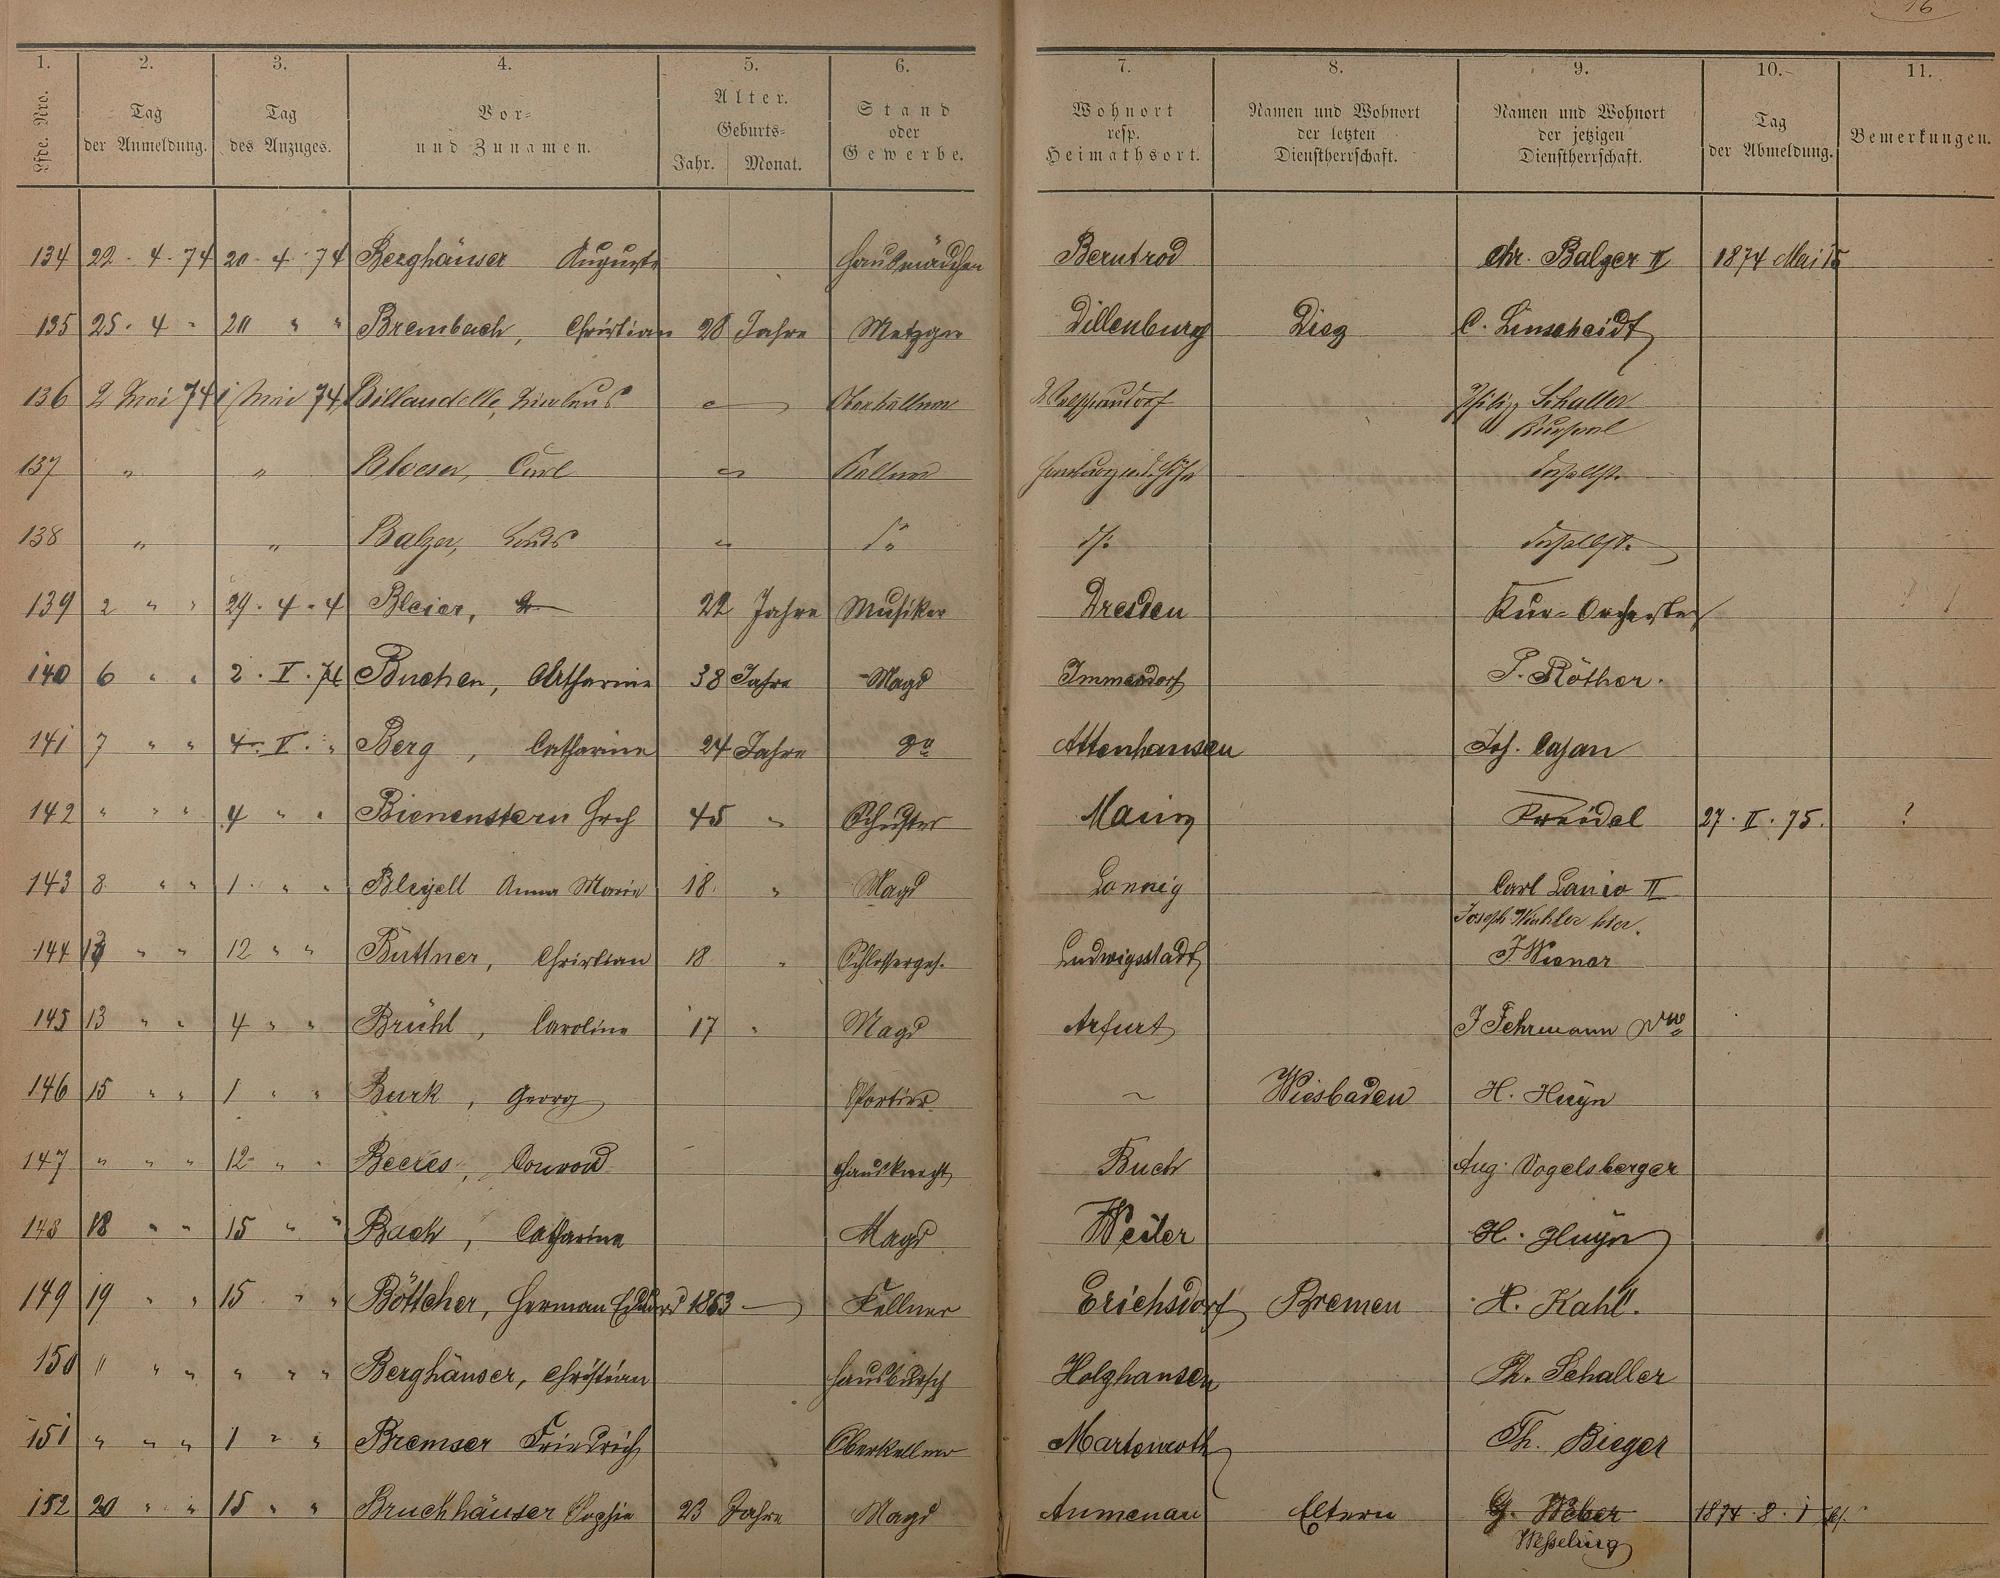 16
1. 2. 3. 4. 5. 6. 7. 8. 9. 10. 11.
Lfde. Nro.
Tag
der Anmeldung.
Tag
des Anzuges.
Vor-
und Zunamen.
Alter.
Geburts-
Jahr. Monat.
Stand
oder
Gewerbe.
Wohnort
resp.
Heimathsort.
Namen und Wohnort
der letzten
Dienstherrschaft.
Namen und Wohnort
der jetzigen
Dienstherrschaft.
Tag
der Abmeldung.
Bemerkungen.
134 22. 4. 74 20. 4. 74 Berghäuser Auguste Hausmädchen Berntrod Chr. Balzer II 1874 Mai 15
135 25. 4 " 20 " " Brembach, Christian 28 Jahre Metzger Dillenburg Diez C. Linscheidt
136 2 Mai 74 1 Mai 74 Billaudelle, " Oberkellner Philip Schaller
Kursaal
137 " " Bloeser, Carl " Kellner Homburg v. d. Höhe daselbst.
138 " " Balzer, Louis " do do daselbst.
139 2 " " 29. 4. 4 Bleier, 22 Jahre Musiker Dresden Kur-Orchester
140 6 " " 2. V. 74 Buchen, Catharine 38 Jahre Magd Immendorf P. Röther.
141 7 " " 4. V. " Berg, Catharine 24 Jahre do Attenhausen Jos. Cajan
142 " " " 4 " " Bienenstern 45 " Schuster Mainz Freidel 27. II. 75. !
143 8 " " 1 " " Bleyell Anna Marie 18 " Magd Lonnig Carl Lanio II
Joseph Winkler hier.
144 13 " " 12 " " Büttner, Christian 18 " Schlosserges. Ludwigsstadt J Wiener
145 13 " " 4 " " Brühl, Caroline 17 " Magd Arfurt J Fehrmann Wwe
146 15 " " 1 " " Burk, Georg Portier ~ Wiesbaden H. Huyn
147 " " " 12 " " Beeres, Conrad Hausknecht Buch Aug. Vogelsberger
148 18 " " 15 " " Bach, Catharine Magd Weiler H. Huyn
149 19 " " 15 " " Böttcher, Herman Eduard 1853 Kellner Erichsdorf Bremen H. Kahl.
150 " " " " " " Berghäuser, Christian Hausbursch Holzhausen Ph. Schaller
151 " " " 1 " " Bremser Friedrich Oberkellner Martenroth Th. Bieger
152 20 " " 15 " " Bruchhäuser Sophie 23 Jahre Magd Aumenau Eltern G. Weber 1874. 8. 1
Wesseling